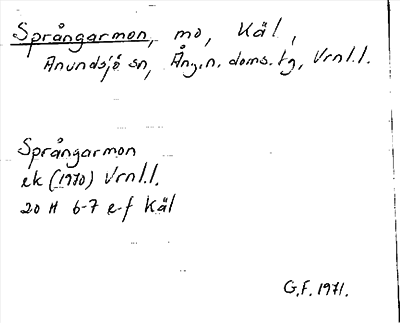 Språngarmon, mo, Käl,
Anundsjö sn, Ång.n. doms.tg, Vrnl.l.
Språngarmon
ek (1970) Vrnl.l.
20 H 6-7 e-f Käl
G.F. 1971.